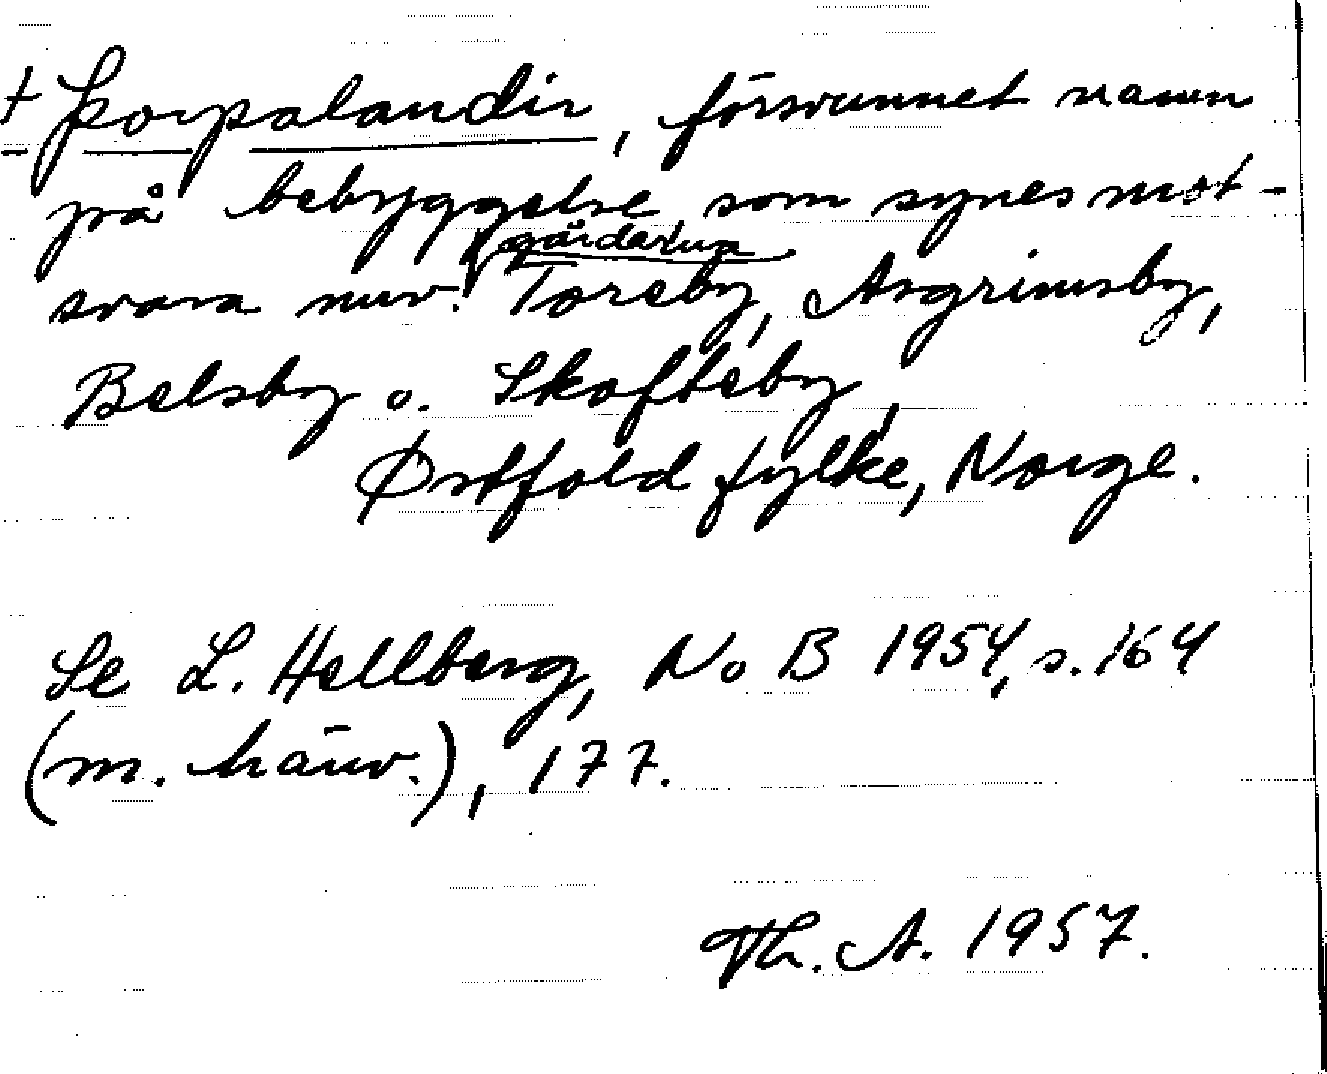 † Þorpalandir, försvunnet namn
på bebyggelse, som synes mot-
svara nuv. gårdarna Toreby, Asgrimsby,
Belsby o. Skofteby,
Østfold fylke, Norge.
Se L. Hellberg, NoB 1954, s. 164
(m. hänv.), 177.
Th. A. 1957.